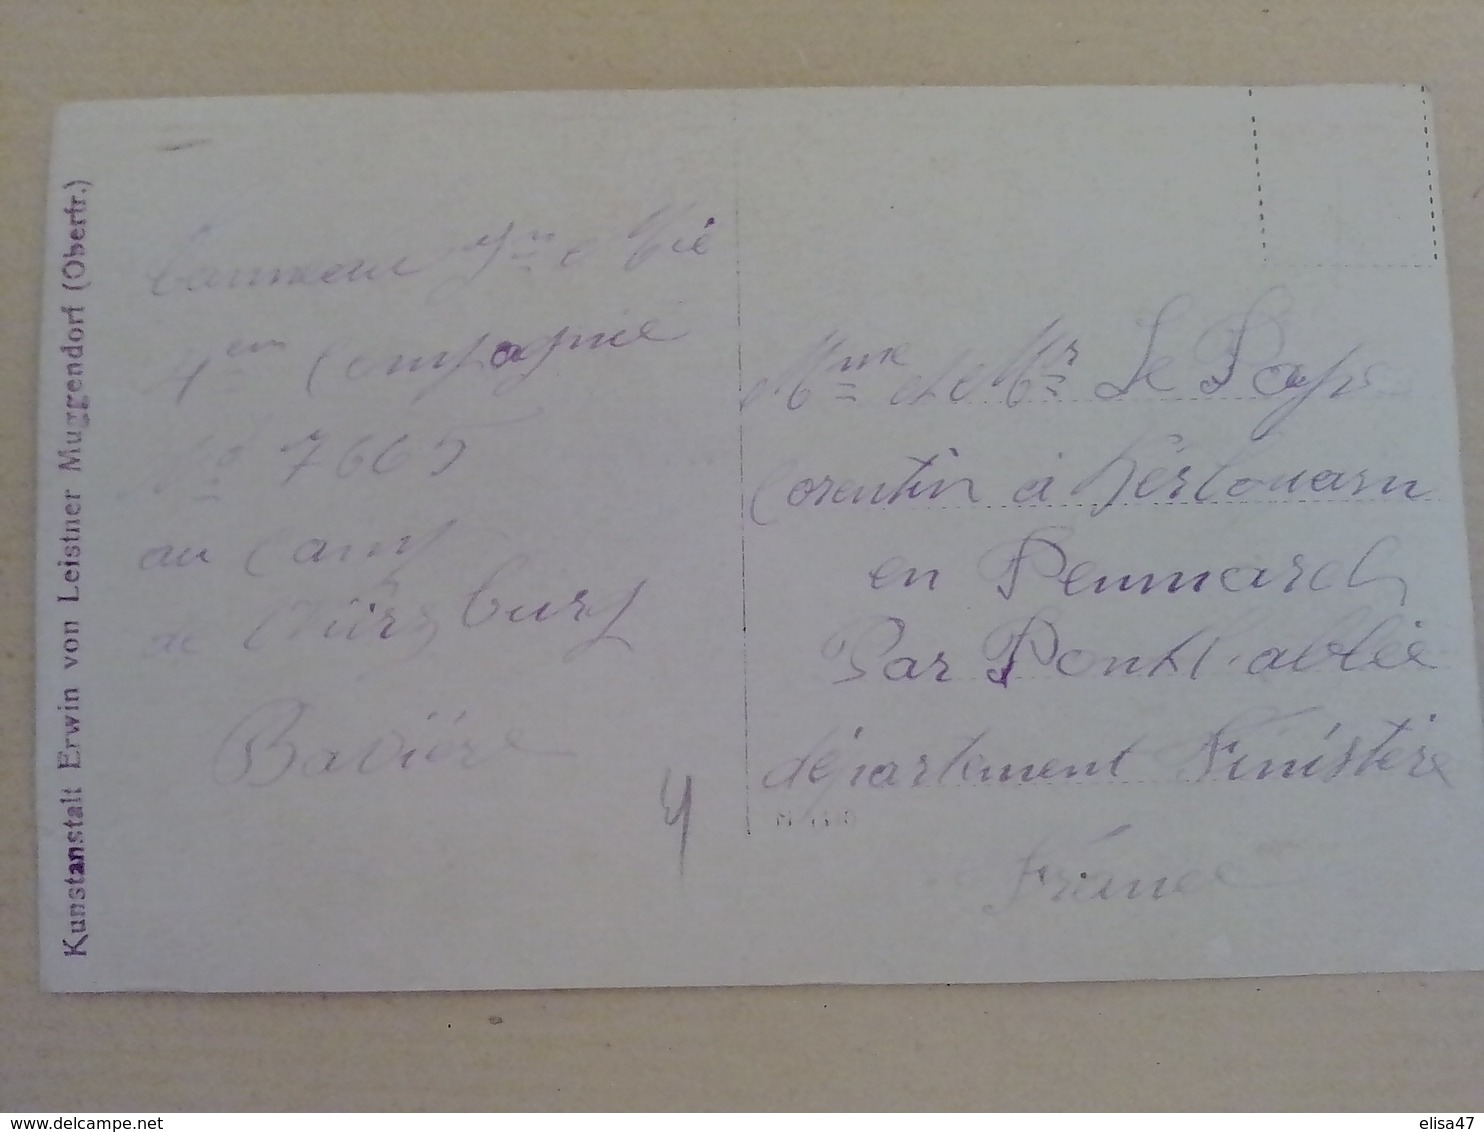 Kunstanstalt Erwin von Leistner Muggendorf (Oberfr.)
Compagnie
No 7665
au Camp
de Würzburg
Bavière
Mme et Mr Le Pape
Corentin à Kerlouarn
en Penmarch
Par Pont l'abbée
département Finistère
France
elisa47